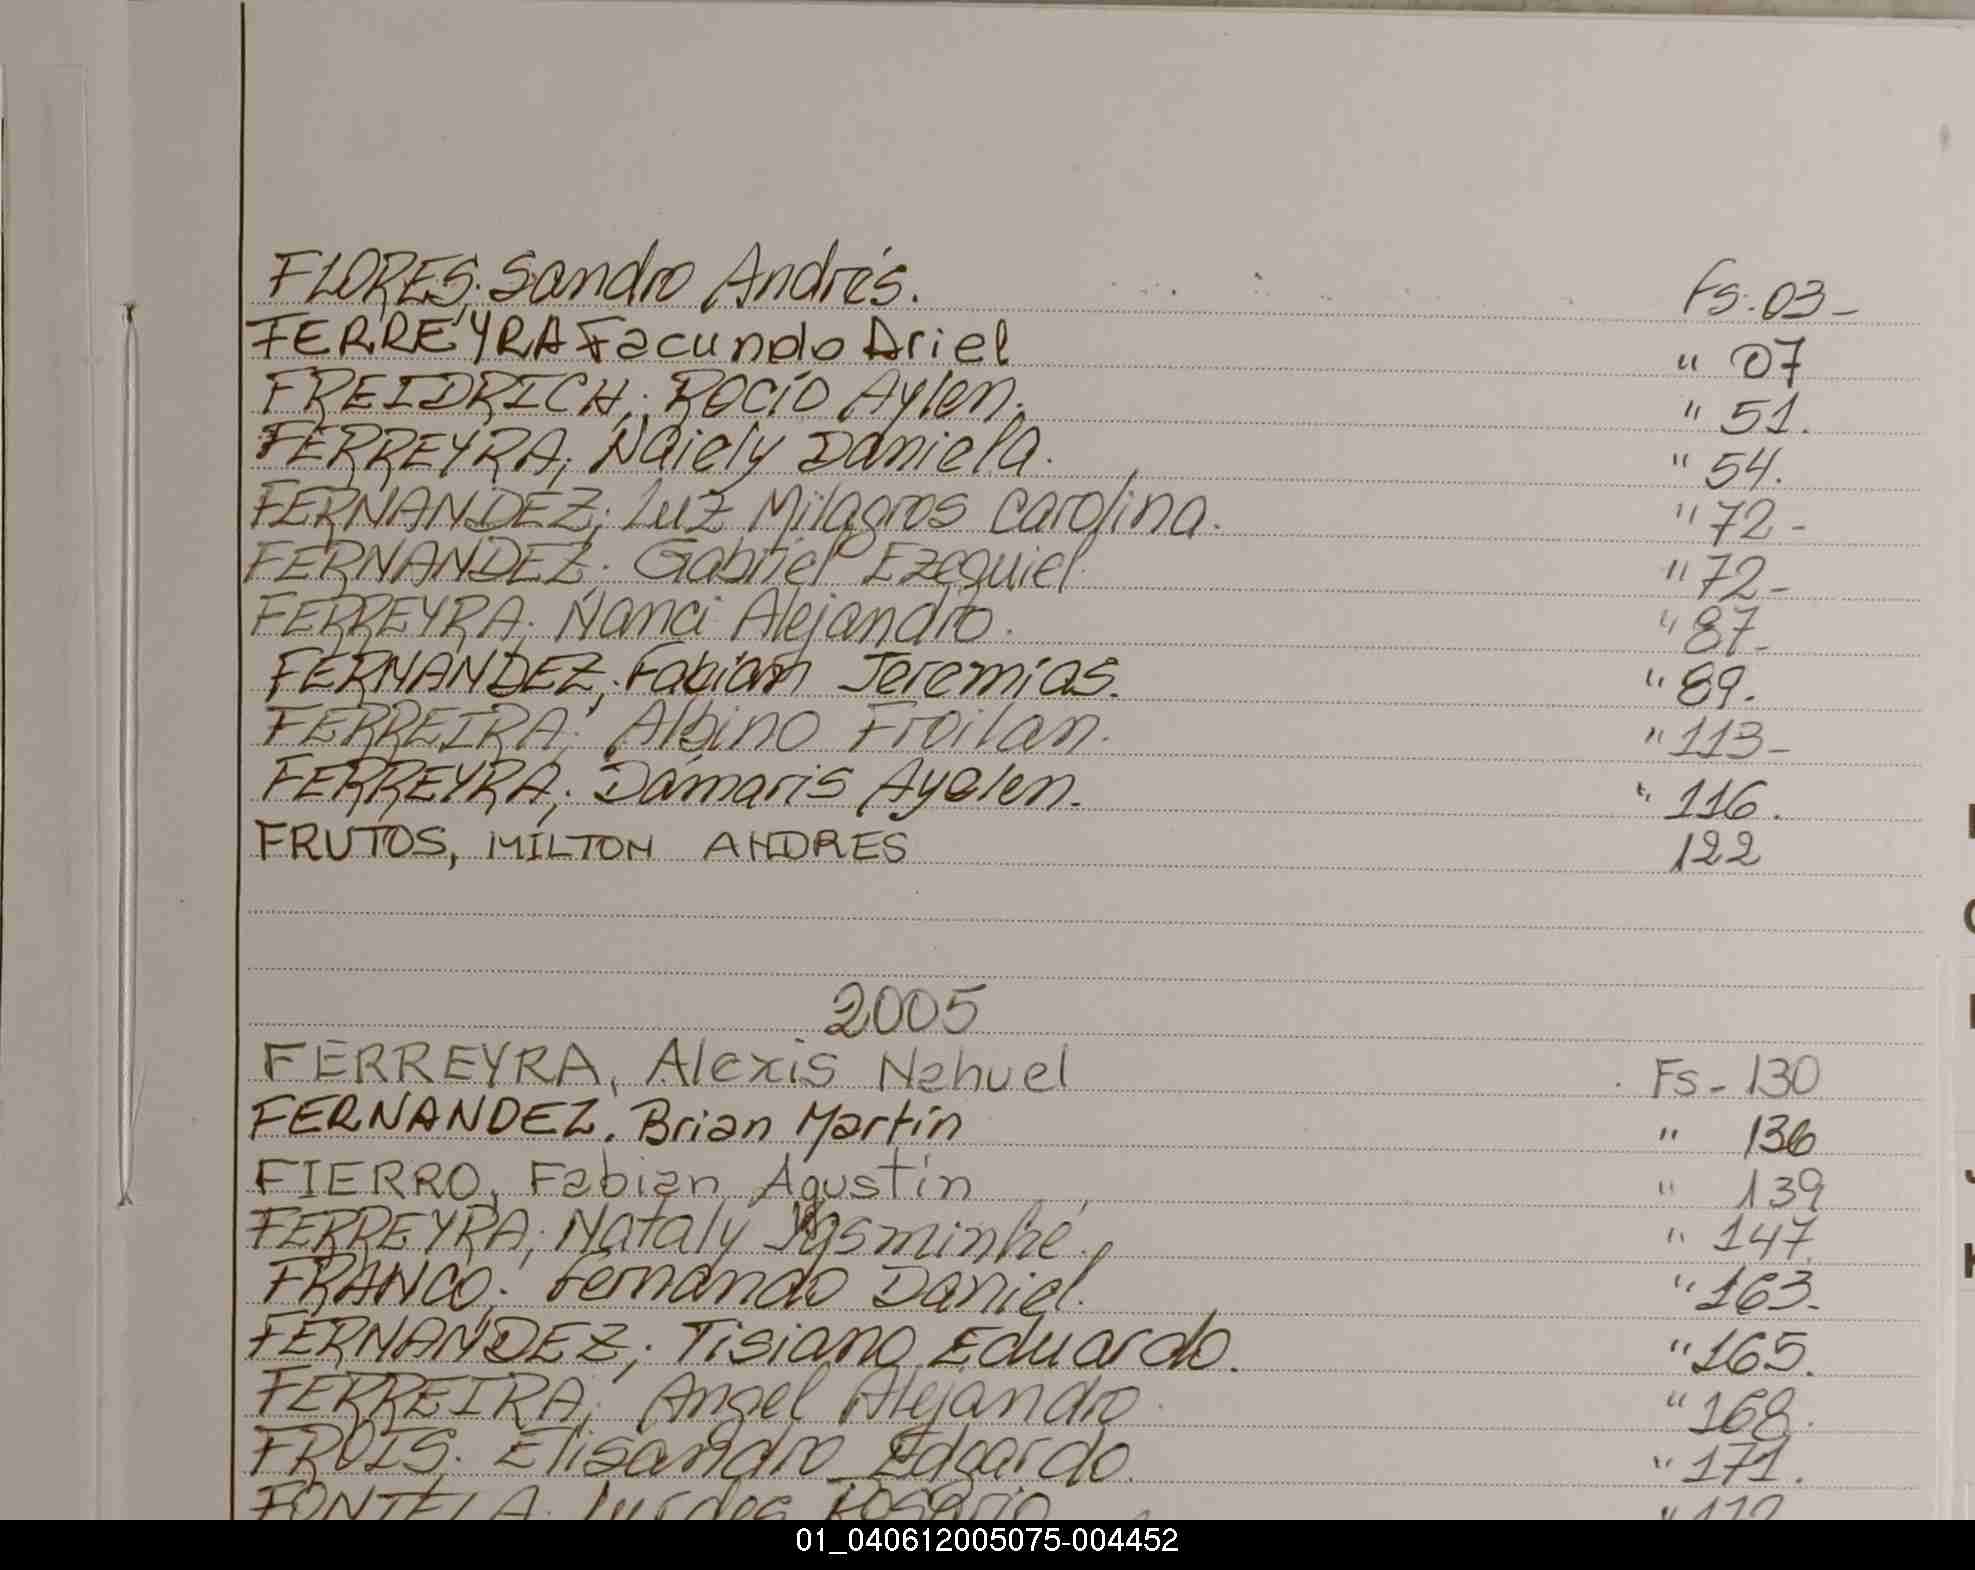 FLORES; Sandro Andrés. Fs. 03-
FERREYRA Facundo Ariel " 07
FREIDRICH; Rocío Aylen. " 51.
FERREYRA; Naiely Daniela. " 54.
FERNANDEZ; Luz Milagros Carolina. " 72-
FERNANDEZ. Gabriel Ezequiel " 72-
FERREYRA; Nanci Alejandro. " 87-
FERNANDEZ; Fabian Jeremías. " 89.
FERREIRA; Albino Froilan. " 113-
FERREYRA; Dámaris Ayelen. " 116.
FRUTOS, MILTON ANDRES 122
2005
FERREYRA, Alexis Nahuel Fs- 130
FERNANDEZ. Brian Martín " 136
FIERRO, Fabian Agustín " 139
FERREYRA; Nataly " 147
FRANCO; Fernando Daniel. " 163-
FERNANDEZ; Tisiano Eduardo. " 165.
FERREIRA; Angel Alejandro. " 168.
FROIS. Elisandro Edgardo. " 171.
FONTELA. Lurdes Rosario " 172
01_040612005075-004452